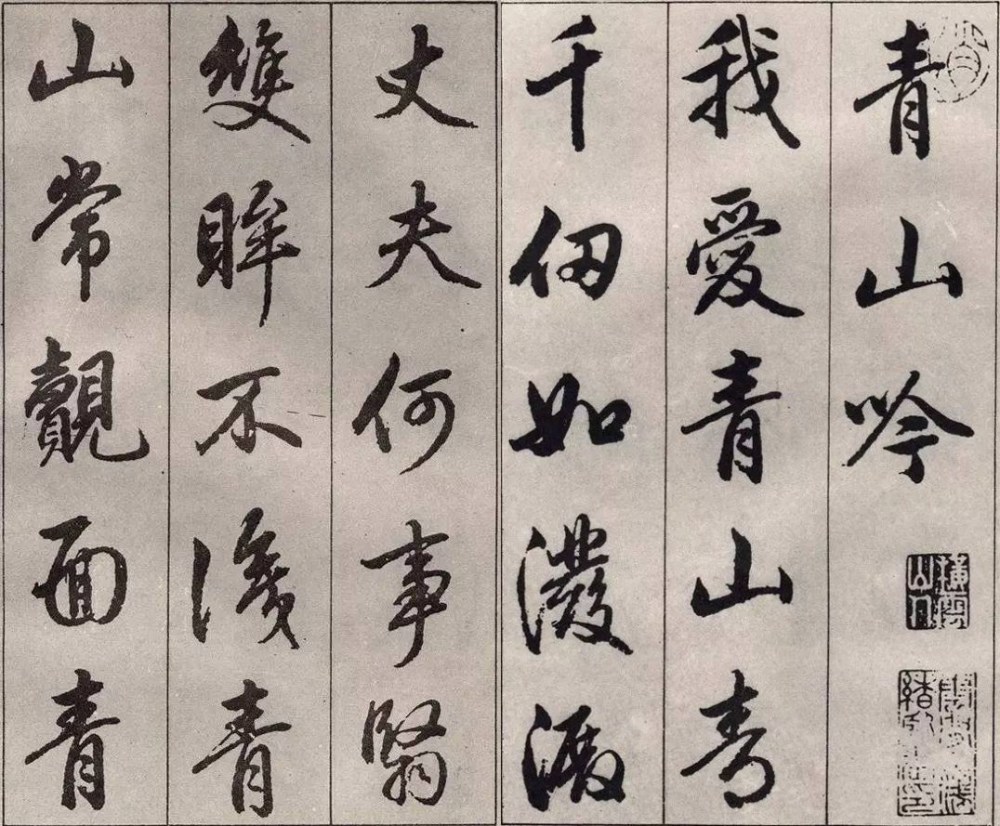 青山吟
橫雲山人
我愛青山青
千仞如潑澱
丈夫何事翳
雙眸不青
山常覿面青